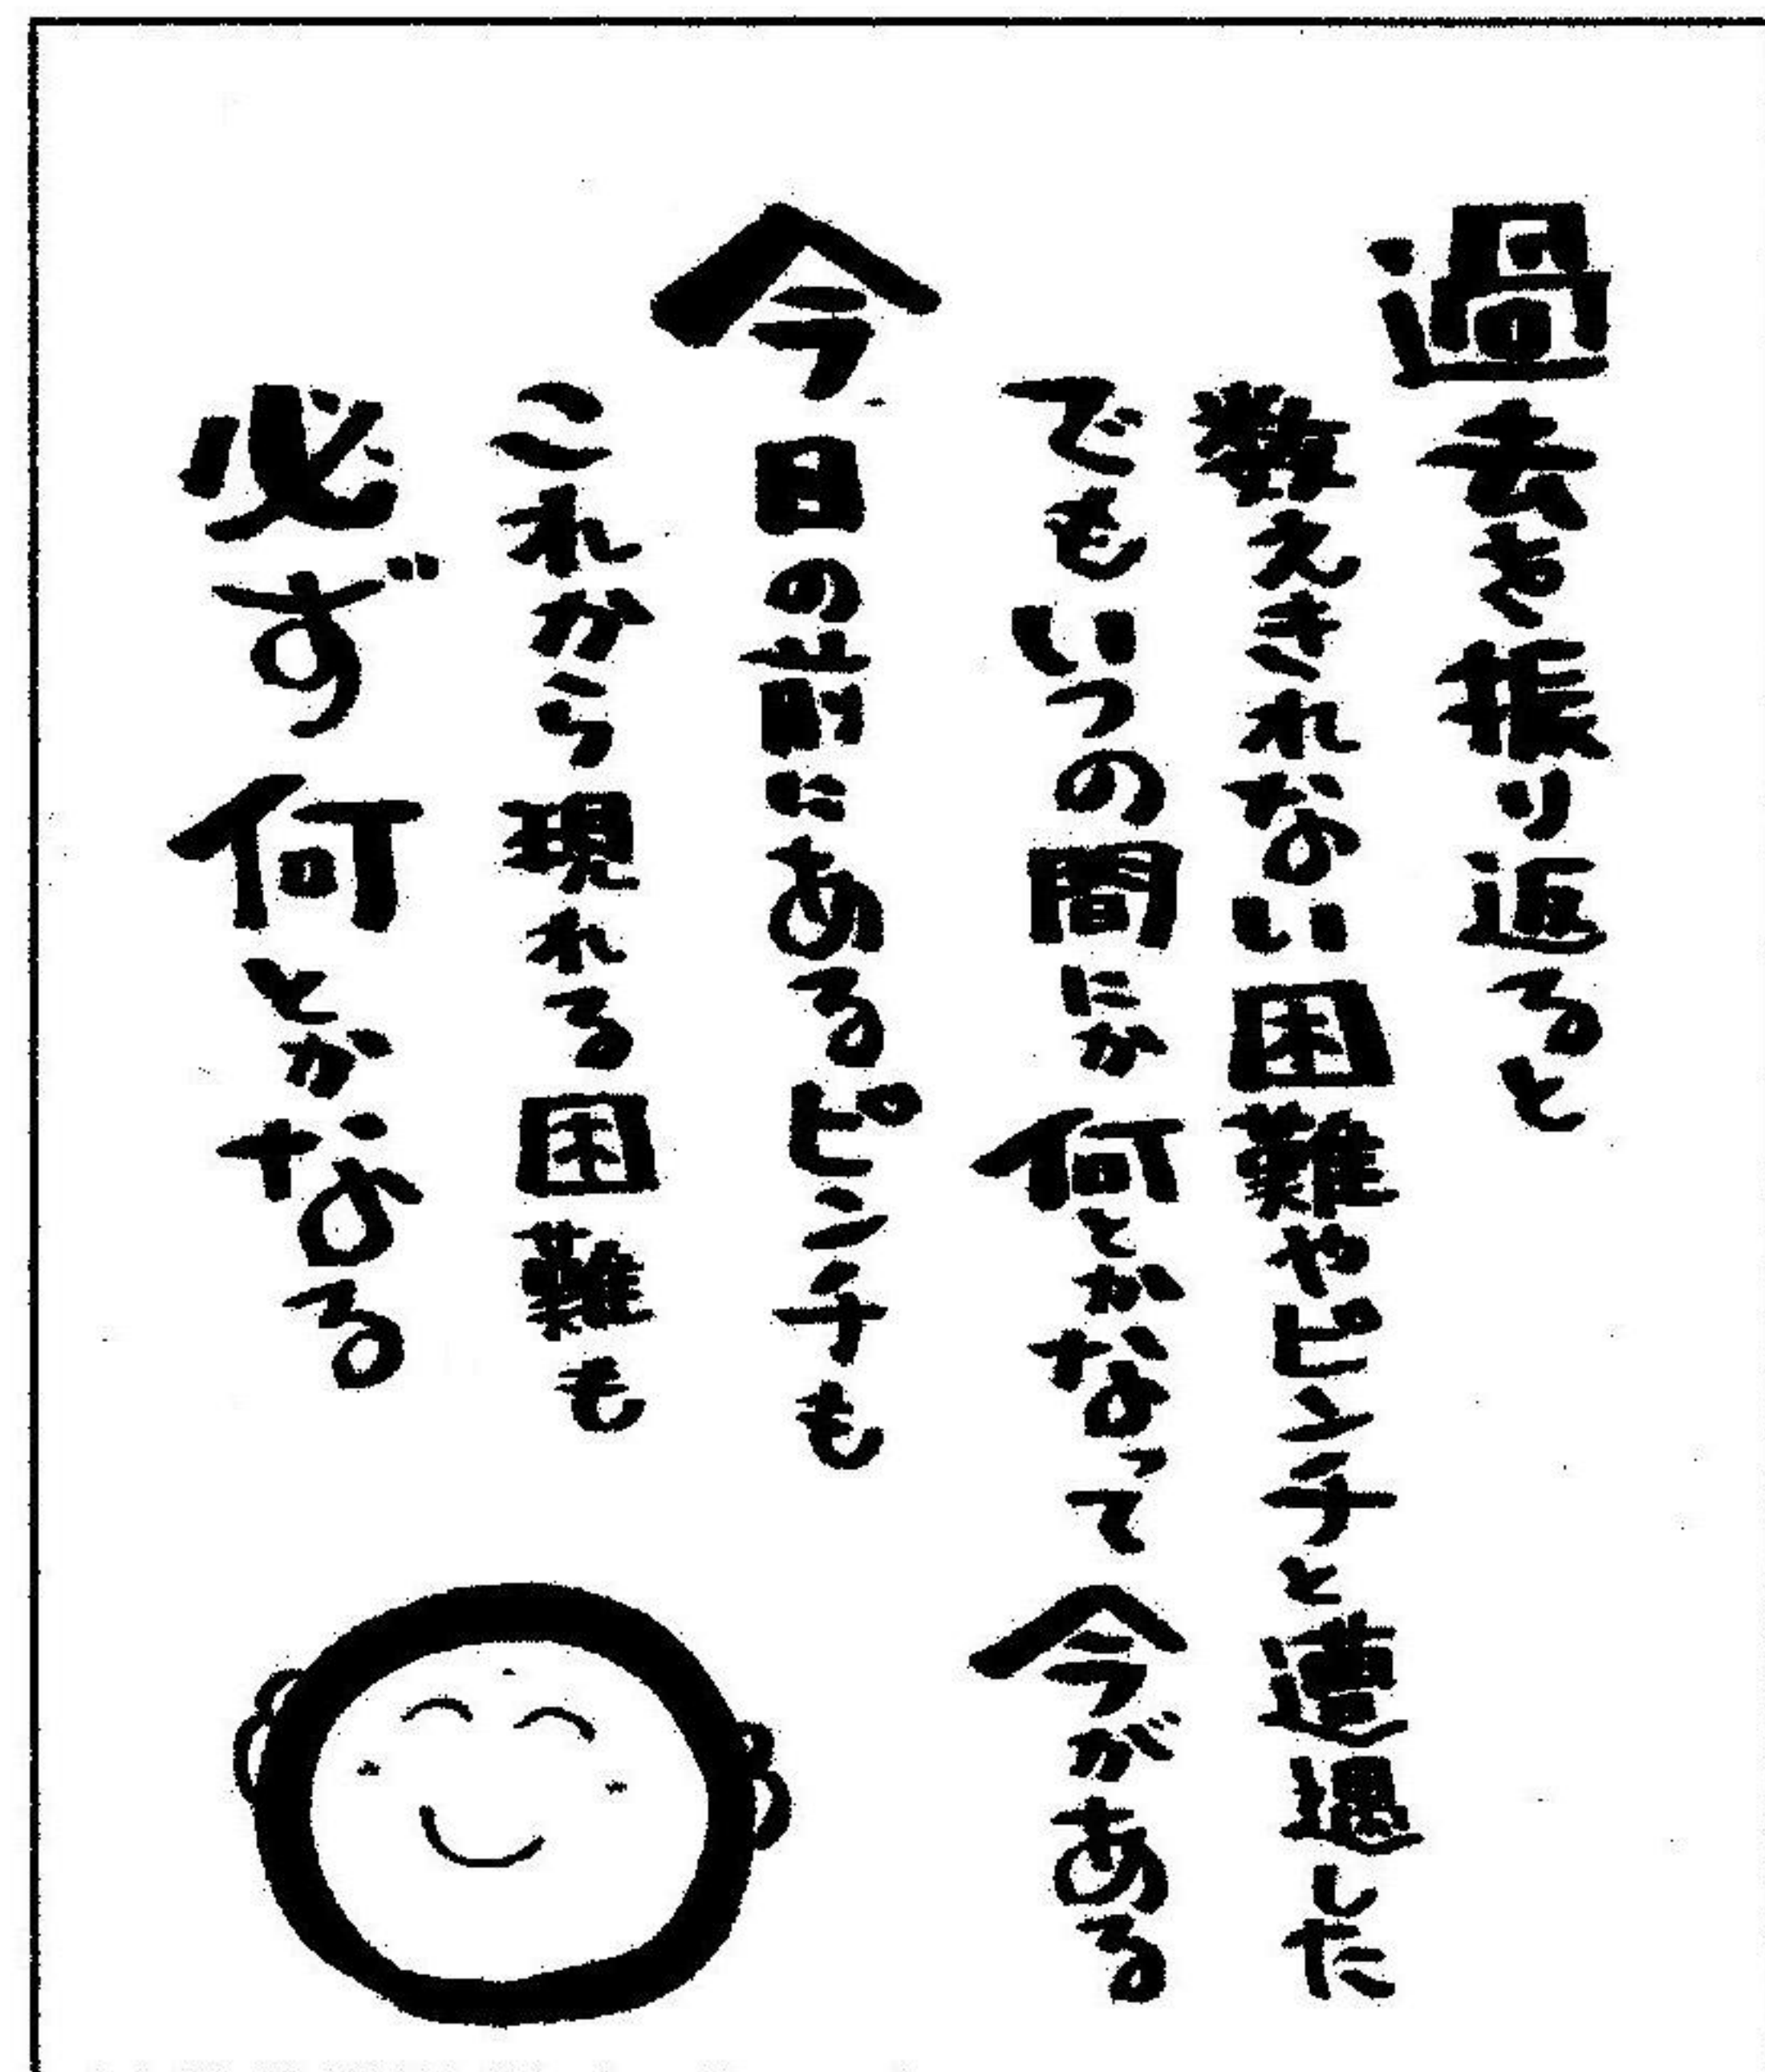 過去を振り返ると
数えきれない困難やピンチと遭遇した
でもいつの間にか何とかなって今がある
今目の前にあるピンチも
これから現れる困難も
必ず何とかなる